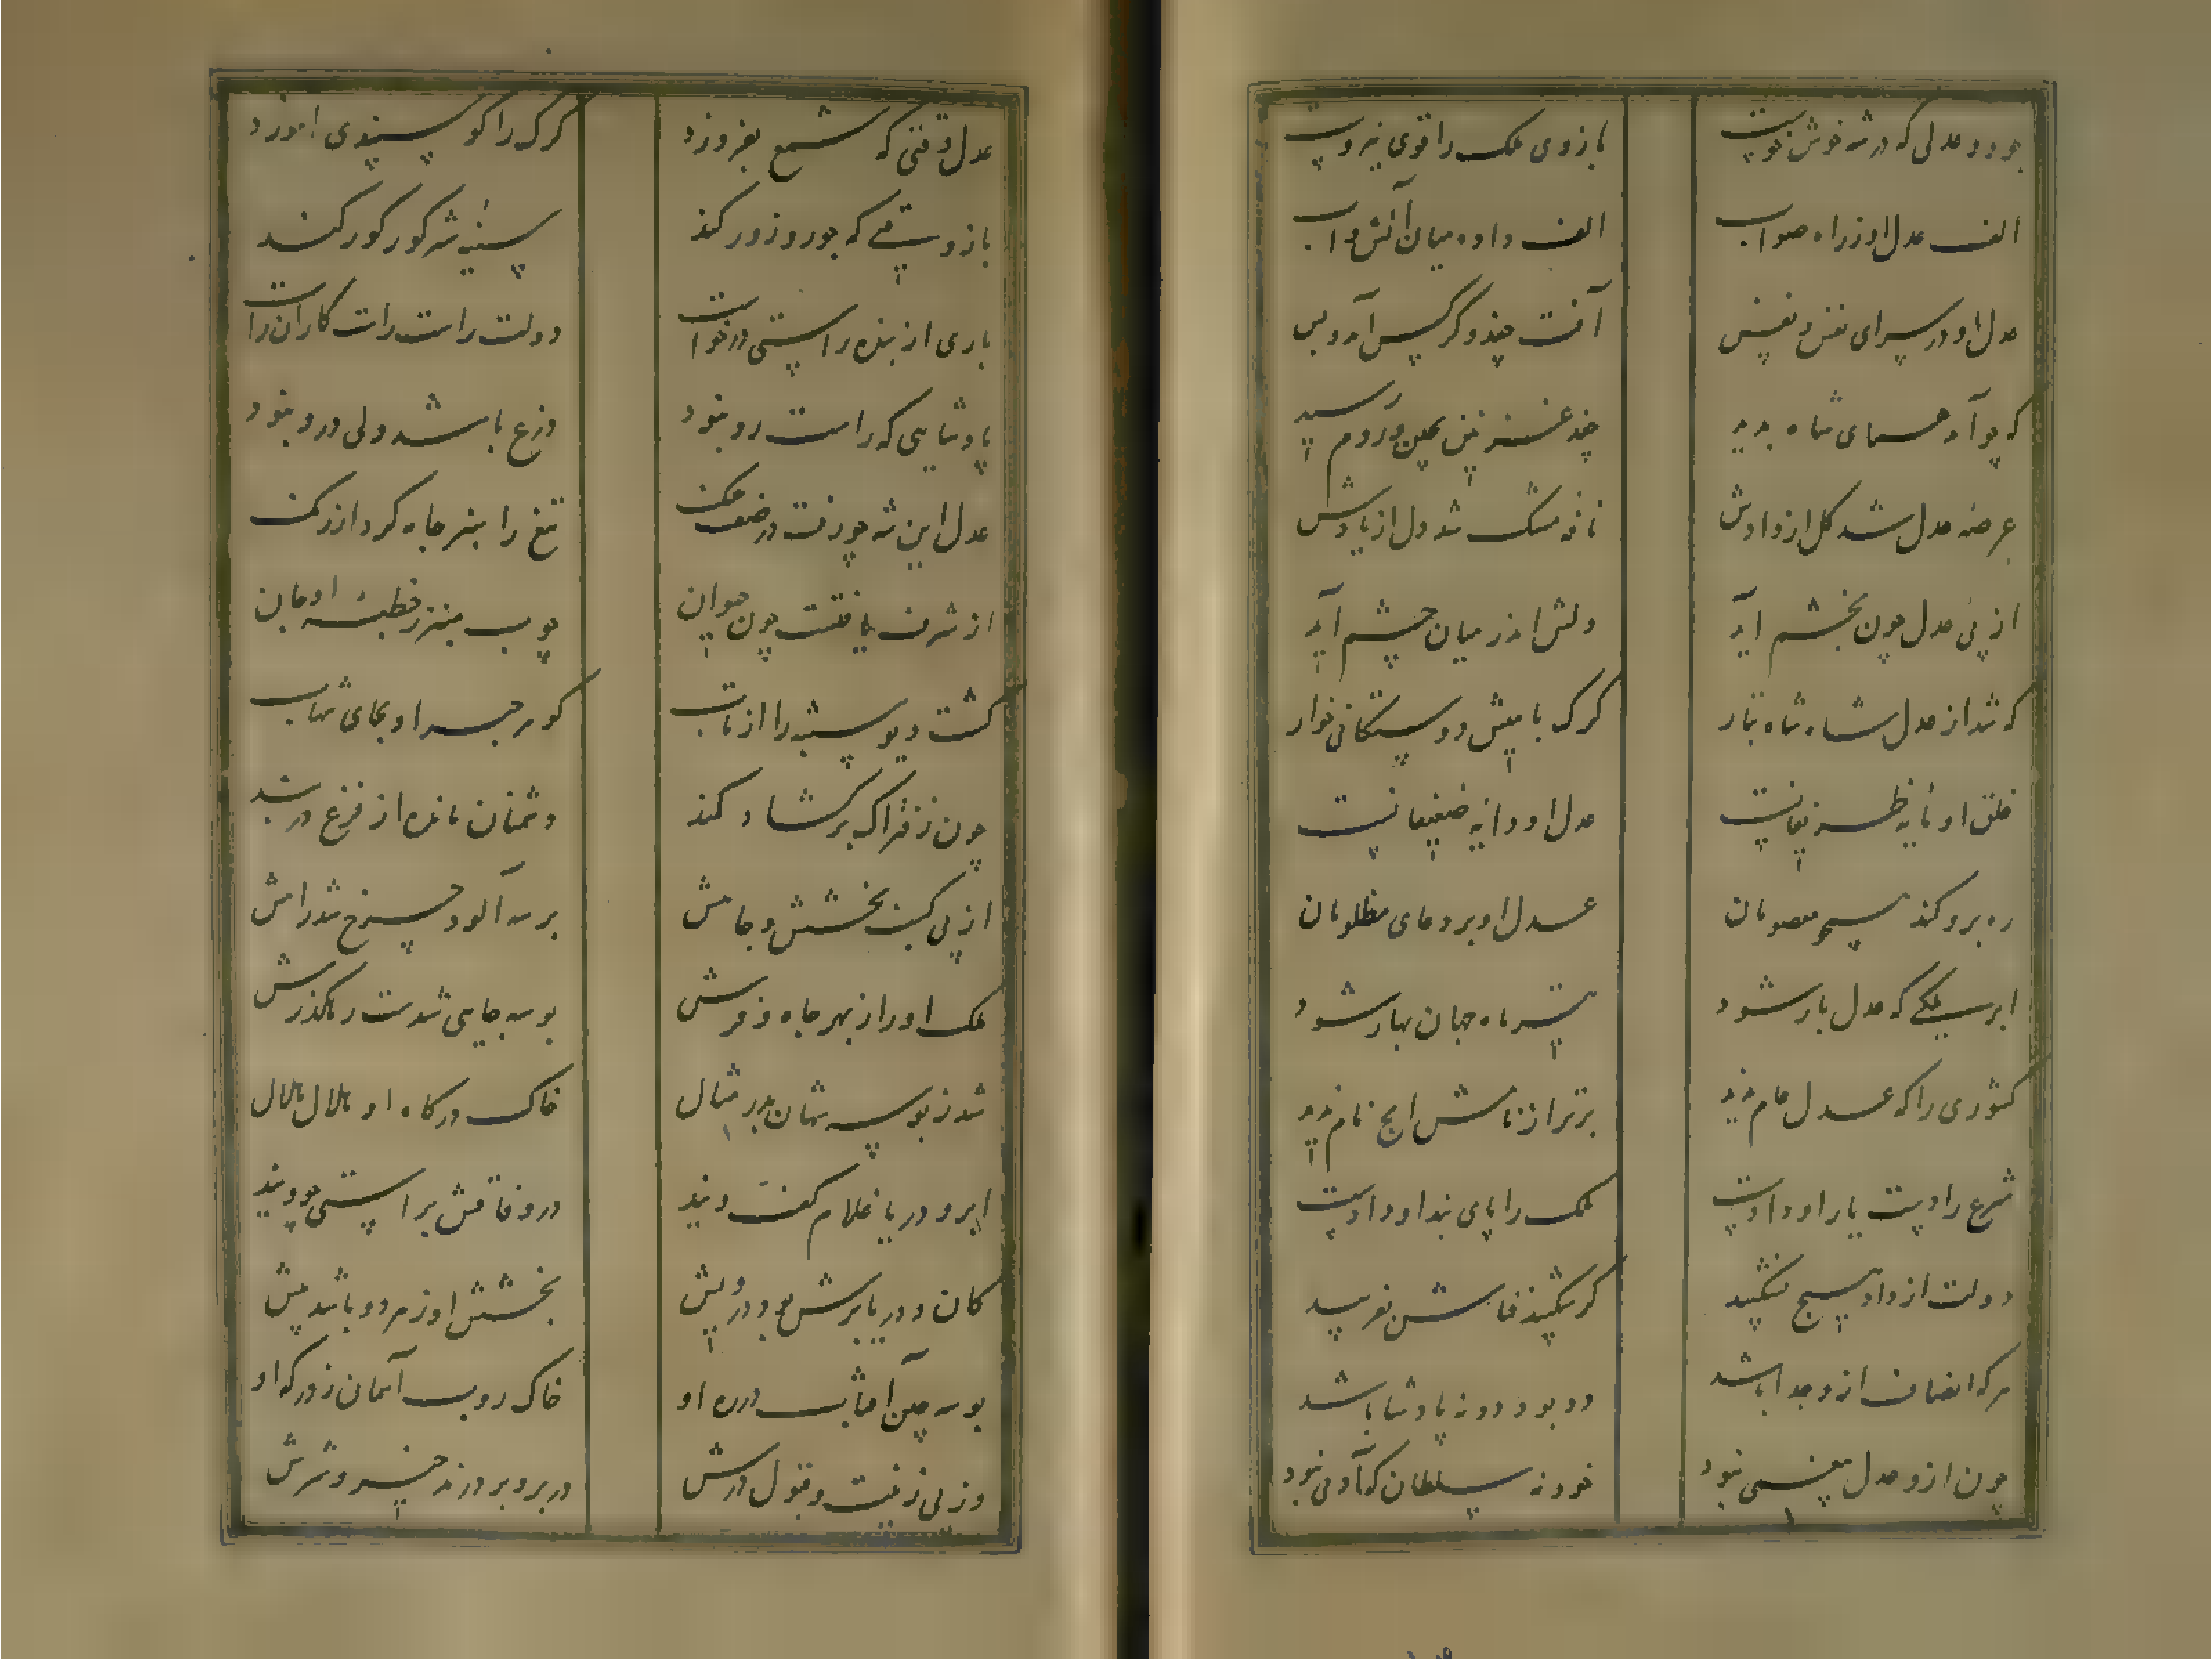 جود و عدلی که در شه خوش خوست بازوی ملک را قوی نیروست
الف عدل او ز راه صواب الف داده میان آتش و آب
عدل او در سرای نفس و نفیس
که چو آمد همای شاه پدید جغد
عرصه عدل شد کل از دادش نافه مشک شد دل از یادش
از پی عدل چون بخشم آید دلش اندر میان چشم آید
که شد از عدل شاه شاه تبار کرک با میش دوستکانی خوار
خلق او عدل او دایه ضعیفانست
ره برو کند معصومان عدل او بر دعای مظلومان
ابر ملکی که عدل بار شود تیر ماه جهان بهار شود
کشوری را که عدل عام ندید برتر از نامش ایچ نام ندید
شرع را دست یار او دادست ملک را پای بند او دادست
دولت از داد هیچ نشکیبد کر شکیبد
هر که انصاف ازو جدا باشد دد بود دد نه پادشا باشد
چون ازو عدل نبود خود نه سلطان که آدمی نبود
عدل وقتی که شمع بفروزد کرک را کوسپندی آموزد
باز وقتی که جور و زور کند سینه شیر کور کور کند
یاری از بنده راستی درخواست دولت راست راست کاران راست
پادشاهی که راست رو نبود درع باشد ولی درو نبود
عدل این شه چو رفت در صف ملک تیغ را
از شرف یافتست چون حیوان چوب منبر ز خطبه او جان
کشت دیو ستنبه را از تاب کوهر خنجر او بجای شهاب
چون ز فتراک بر کشاد کمند دشمنان مانده از فزع در بند
از پی کسب بخشش و جامش بوسه آلود چرخ شد رامش
ملک او را ز بهر جاه و فرش بوسه جایی شدست رهکذرش
شد ز بوس شهان بدر مثال خاک درکاه او هلال هلال
ابر و دریا غلام کفت ویند در وفاقش براستی چو ویند
کان و دریا برش بود درویش بخشش او ز مرد و باشد بیش
بوسه چین آفتاب در ره او خاک روب آسمان ز درکه او
وز پی زینت و قبول درش در بر و بر درند خیر و شرش